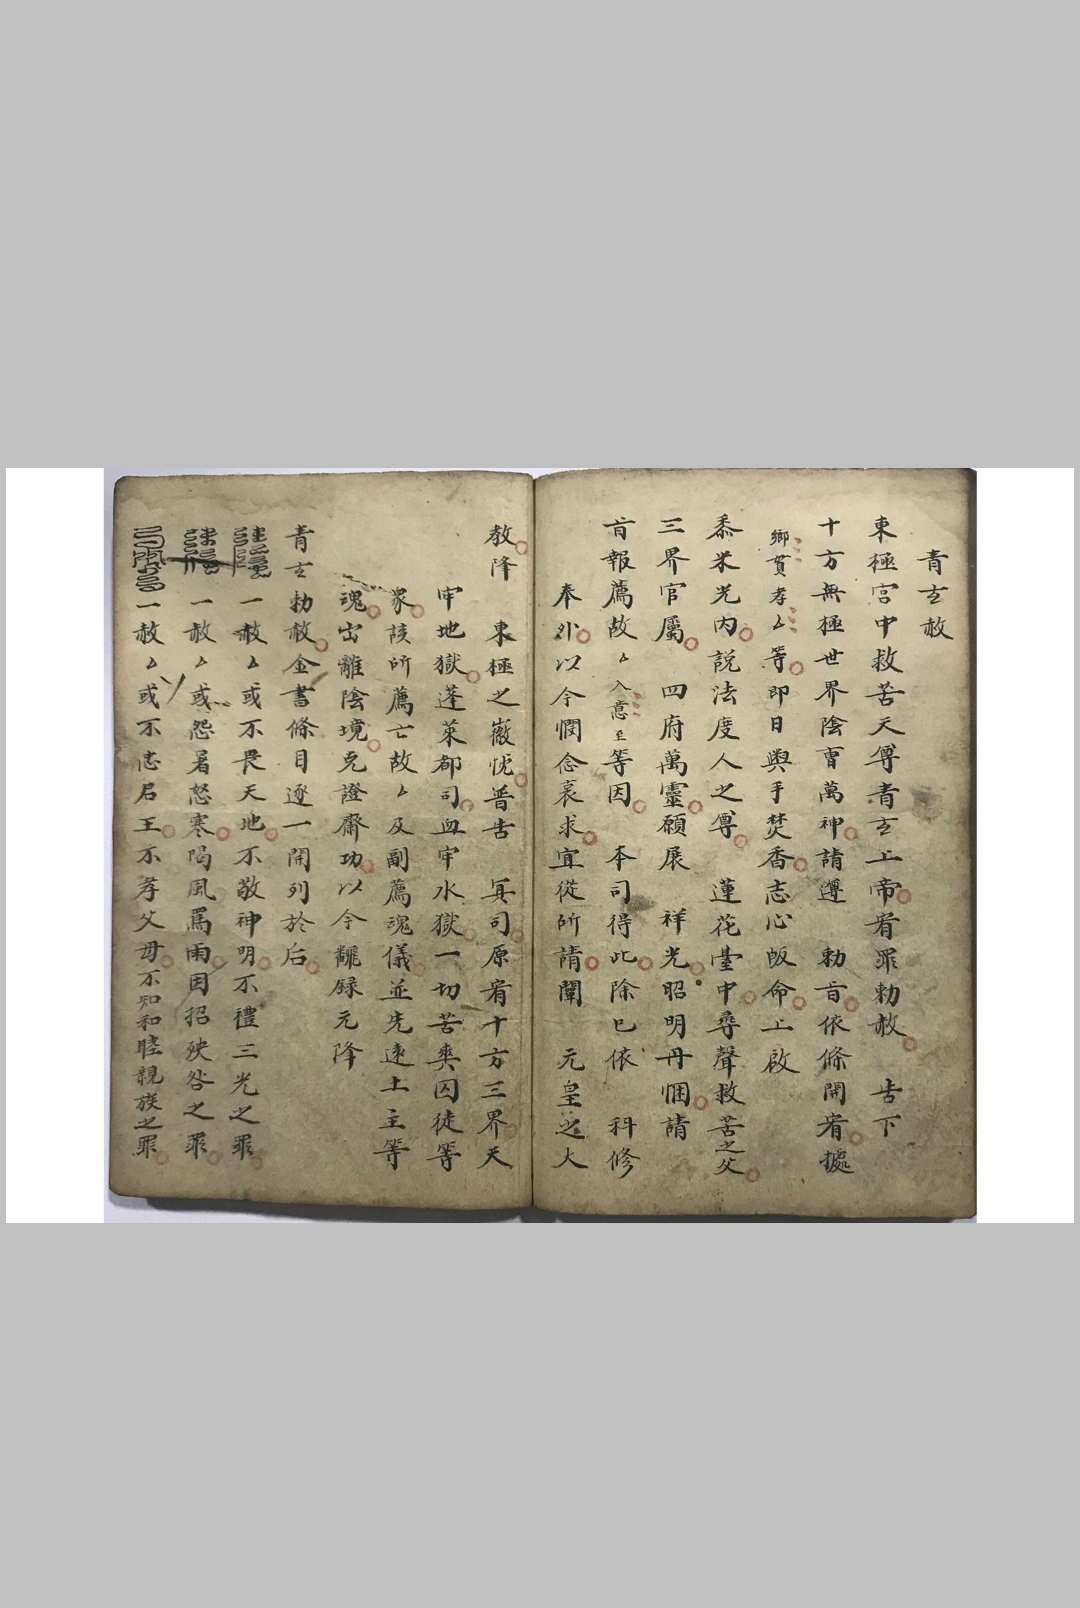 青玄赦
東極宮中救苦天尊青玄上帝宥罪勅赦　告下
十方無極世界陰曺萬神請遵　勅旨依條開宥據
鄉貫孝厶等即日輿手焚香志心皈命上啟
黍米光內說法度人之尊　蓮花臺中尋聲救苦之父
三界官屬　四府萬靈願展　祥光昭明丹悃請
旨報薦故厶入意至等因　本司得此除已依　科修
奉外以今憫念哀求宜從所請闡　元皇之大
教降　東極之徽忱普告　冥司原宥十方三界天
牢地獄蓬萊都司血牢水獄一切苦爽囚徒等
衆該所薦亡故厶及副薦魂儀並先遠土主等
魂出離陰境克證齋功以今觀錄元降
青玄勅赦金書條目逐一開列於后
一赦厶或不畏天地不敬神明不禮三光之罪
一赦厶或怨暑怒寒喝風罵雨因招殃咎之罪
一赦厶或不忠君王不孝父毋不知和睦親族之罪